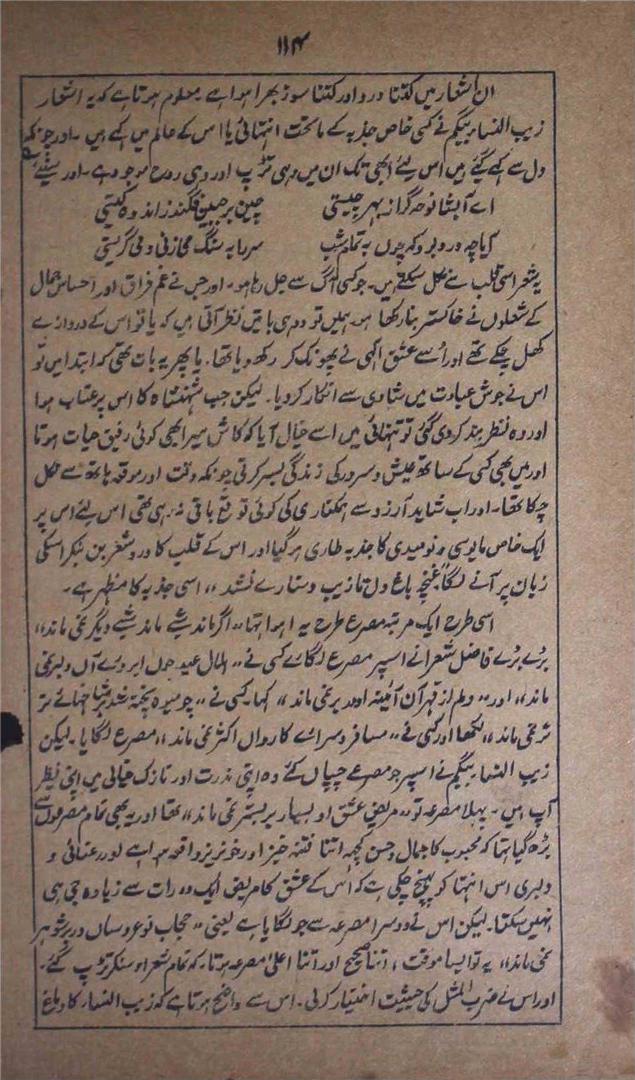 ۱۱۴
ان اشعار میں کتنا درد اور کتنا سوز بھرا ہوا ہے معلوم ہوتا ہے کہ یہ اشعار
زیب النسار بیگم نے کسی خاص جذبہ کے ماتحت انتہائی یاس کے عالم میں کہے ہیں ۔ اور چونکہ
دل سے کہے گئے ہیں اس لئے ابھی تک ان میں وہی تڑپ اور وہی روح موجود ہے ۔ اور سنئے
اے آبشار نوحہ گر از بہر چیستی چین بر جبیں فگندہ ز اندوہ کیستی
آیا چہ درد بود کہ چوں ما تمام شب سر را بہ سنگ می زدی و می گریستی
یہ شعر اسی قلب سے نکل سکتے ہیں ۔ جو کسی آگ سے جل رہا ہو ۔ اور جس نے غم فراق اور احساس جمال
کے شعلوں نے خاکستر بنا رکھا ہو ۔ ہمیں تو دو ہی باتیں نظر آتی ہیں کہ یا تو اس کے دروازے
کھل چکے تھے اور اُسے عشق الٰہی نے پھونک کر رکھ دیا تھا ۔ یا پھر یہ بات تھی کہ ابتدا میں تو
اس نے جوش عبادت میں شادی سے انکار کر دیا ۔ لیکن جب شہنشاہ کا اس پر عتاب ہوا
اور وہ نظر بند کر دی گئی تو تنہائی میں اسے خیال آیا کہ کاش میرا بھی کوئی رفیق حیات ہوتا
اور میں بھی کسی کے ساتھ عیش و سرور کی زندگی بسر کرتی چونکہ وقت اور موقعہ ہاتھ سے نکل
چکا تھا ۔ اور اب شاید آرزو سے ہمکناری کی کوئی توقع باقی نہ رہی تھی اس لئے اس پر
ایک خاص مایوسی و نومیدی کا جذبہ طاری ہو گیا اور اس کے قلب کا درد شعر بن بنکر اسکی
زبان پر آنے لگا غنچہ باغ دل ما زیب دستارے نشد ،، اسی جذبہ کا مظہر ہے ۔
اسی طرح ایک مرتبہ مصرع طرح یہ ہوا تھا ،، اگر ماند شبے ماند شبے دیگر نمی ماند ،،
بڑے بڑے فاضل شعرا نے اسپر مصرع لگائے کسی نے ،، ہلال عید چوں ابروے آں دلبر نمی
ماند ،، اور ،، دلم از قہر آں آئینہ اوور برنمی ماند ،، کہا ۔ کسی نے ،، چو میوہ پختہ شد بر شاخہائے تر
تر نمی ماند ،، لکھا اور کسی نے ،، مسافر در سراے کارواں اکثر نمی ماند ،، مصرع لگایا ۔ لیکن
زیب النسار بیگم نے اسپر جو مصرعے چسپاں کئے وہ اپنی ندرت اور نازک خیالی میں اپنی نظیر
آپ ہیں ۔ پہلا مصرعہ تو ،، مریض عشق او بسیار بر بستر نمی ماند ،، تھا اور یہ بھی تمام مصرعوں سے
بڑھ گیا تھا کہ محبوب کا جمال و حسن کچھ اتنا فتنہ خیز اور خونریز واقعہ ہوا ہے اور رعنائی و
دلبری اس انتہا کو پہنچ چکی ہے کہ اُس کے عشق کا مریض ایک دو رات سے زیادہ جی ہی
نہیں سکتا ۔ لیکن اس نے دوسرا مصرعہ سے جو لگایا ہے یعنی ،، حجاب نو عروساں در بر شوہر
نمی ماند ،، یہ تو ایسا موقت ، اتنا صحیح اور اتنا اعلیٰ مصرعہ ہوتا ۔ کہ تمام شعرا سنکر تڑپ گئے ۔
اور اس نے ضرب المثل کی حیثیت اختیار کر لی ۔ اس سے واضح ہوتا ہے کہ زیب النسار کا دماغ